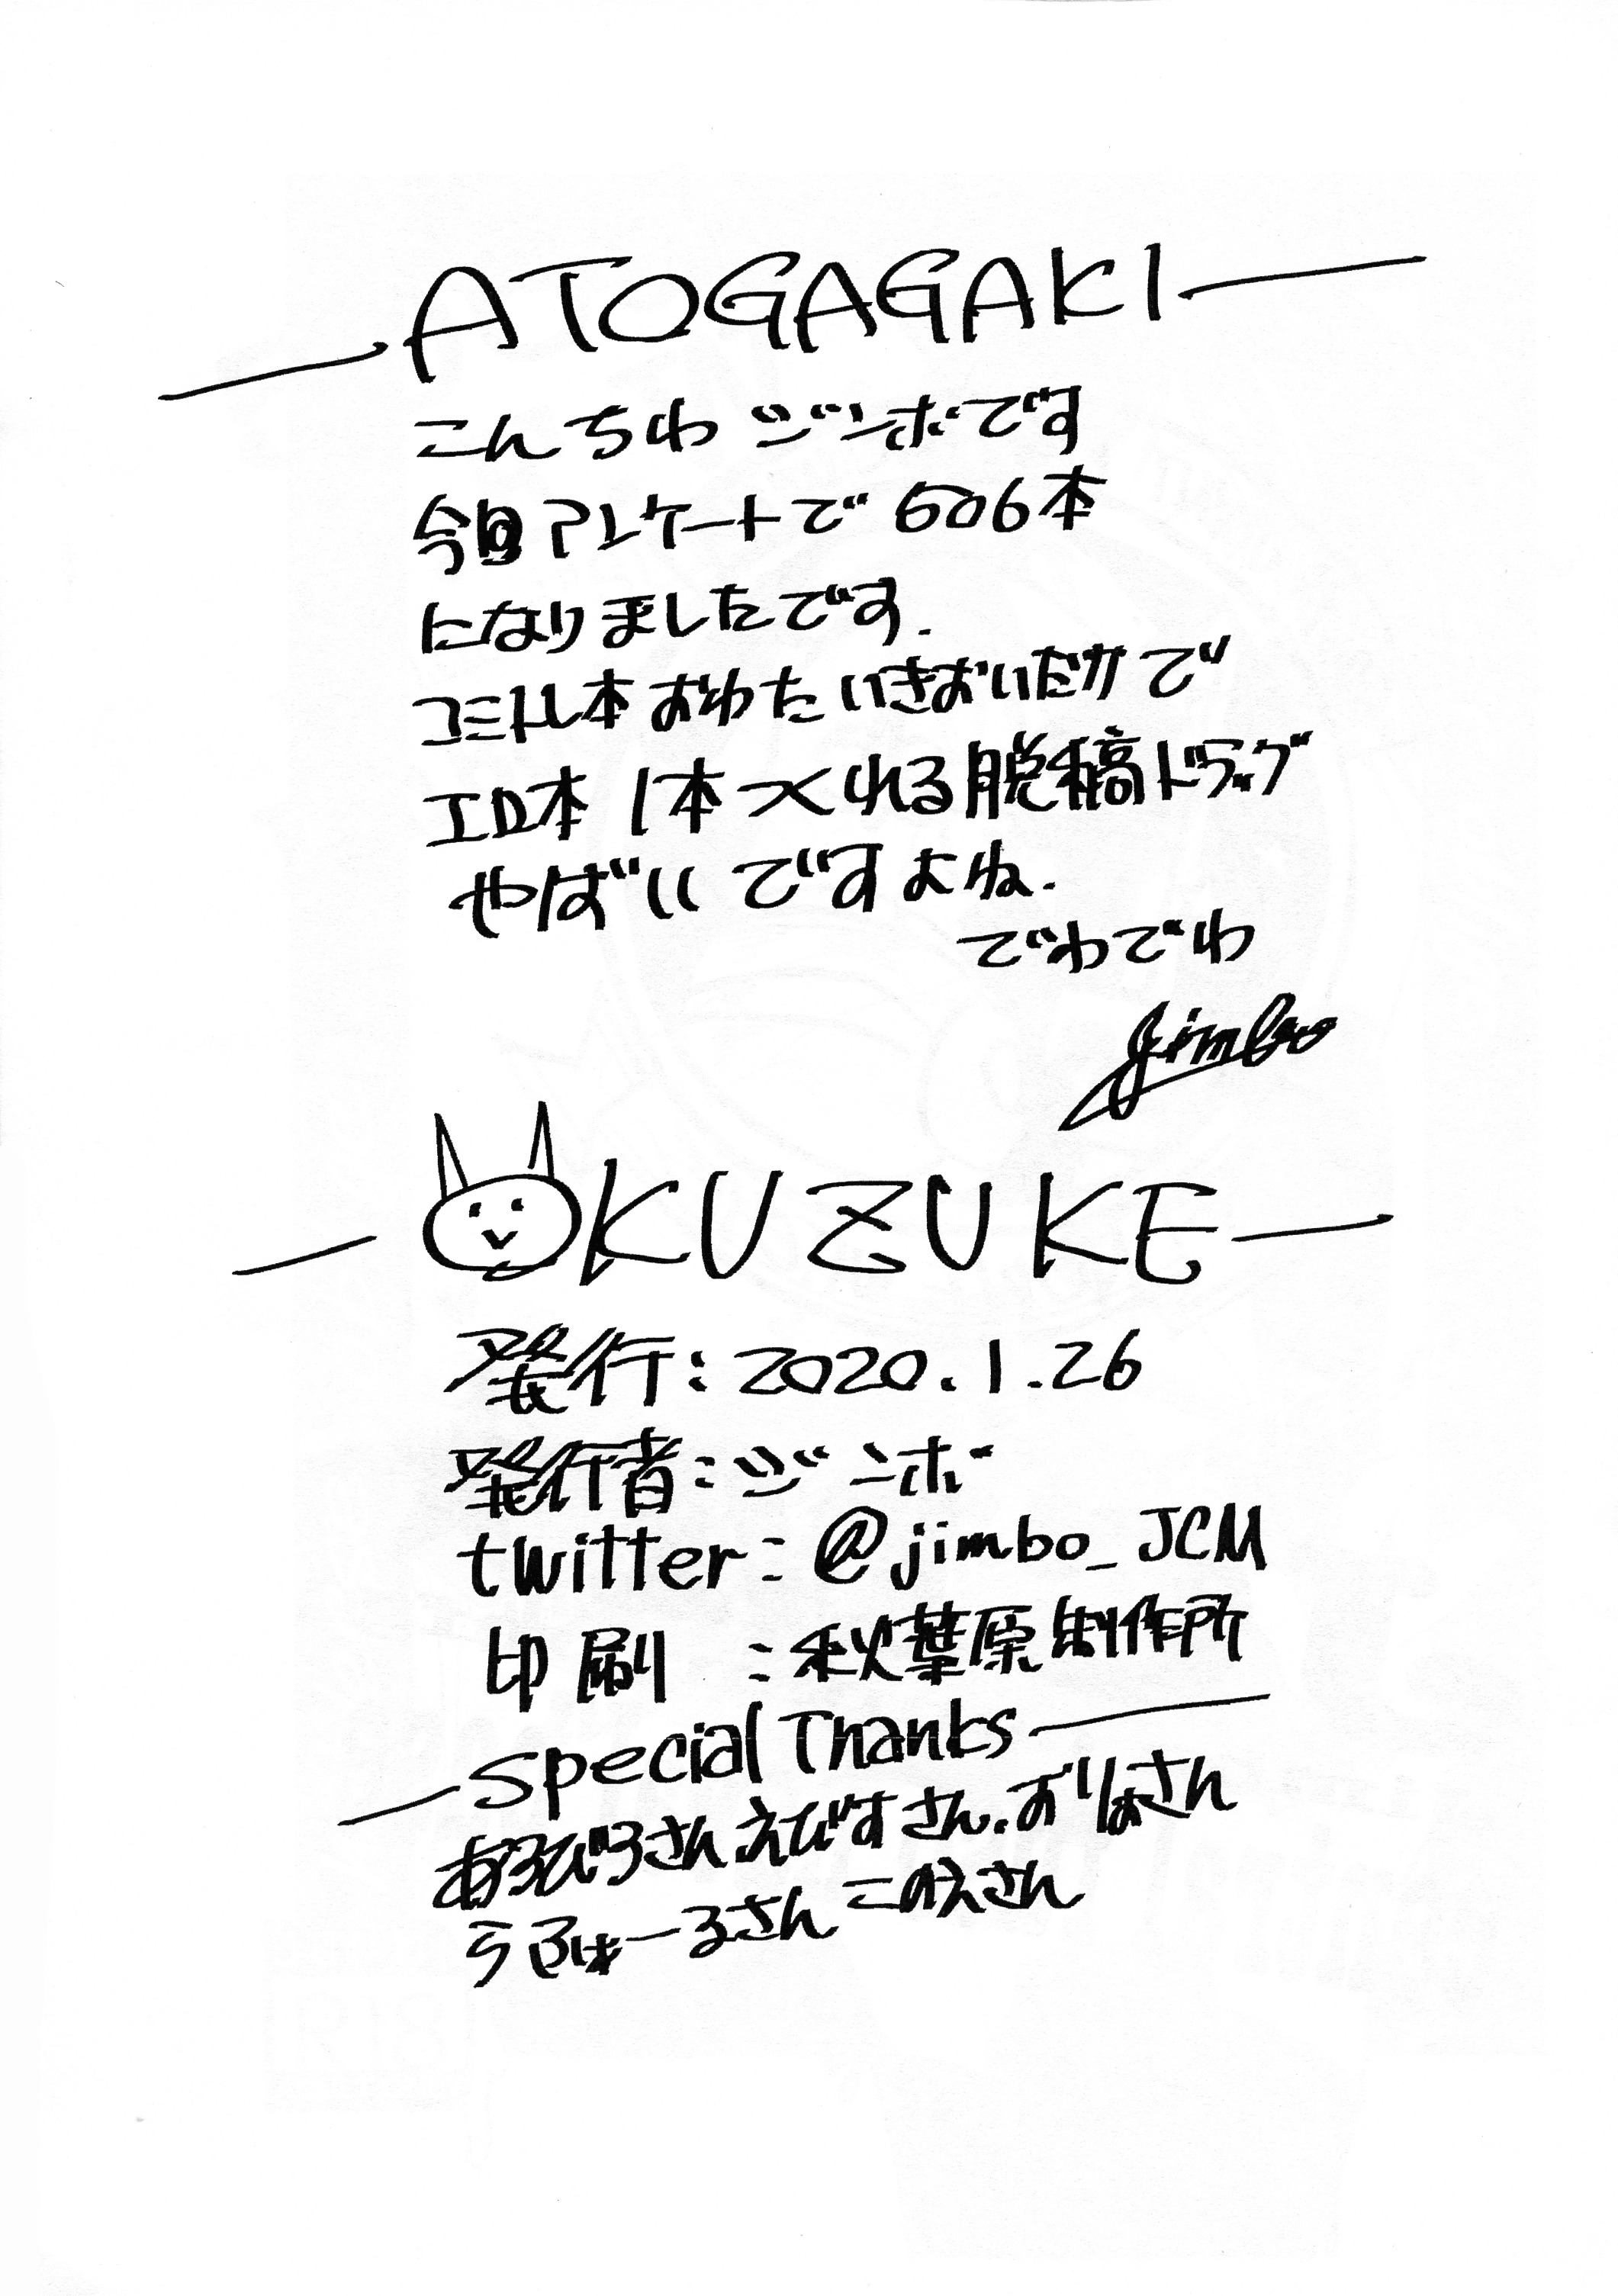 ATOGAGAKI
こんちわ ジンボです
今回アンケートで 606本
になりましたです.
コミトレ本おわたいきおいだかで
エロ本1本つくれる脱稿ドラッグ
やばいですよね.
でわでわ
Jimbo
OKUZUKE
発行:2020.1.26
発行者:ジンボ
twitter:@jimbo_JCM
印刷 :秋葉原制作所
Special Thanks
あるびるさん えびすさん.おりはさん
うふゅーるさん このえさん